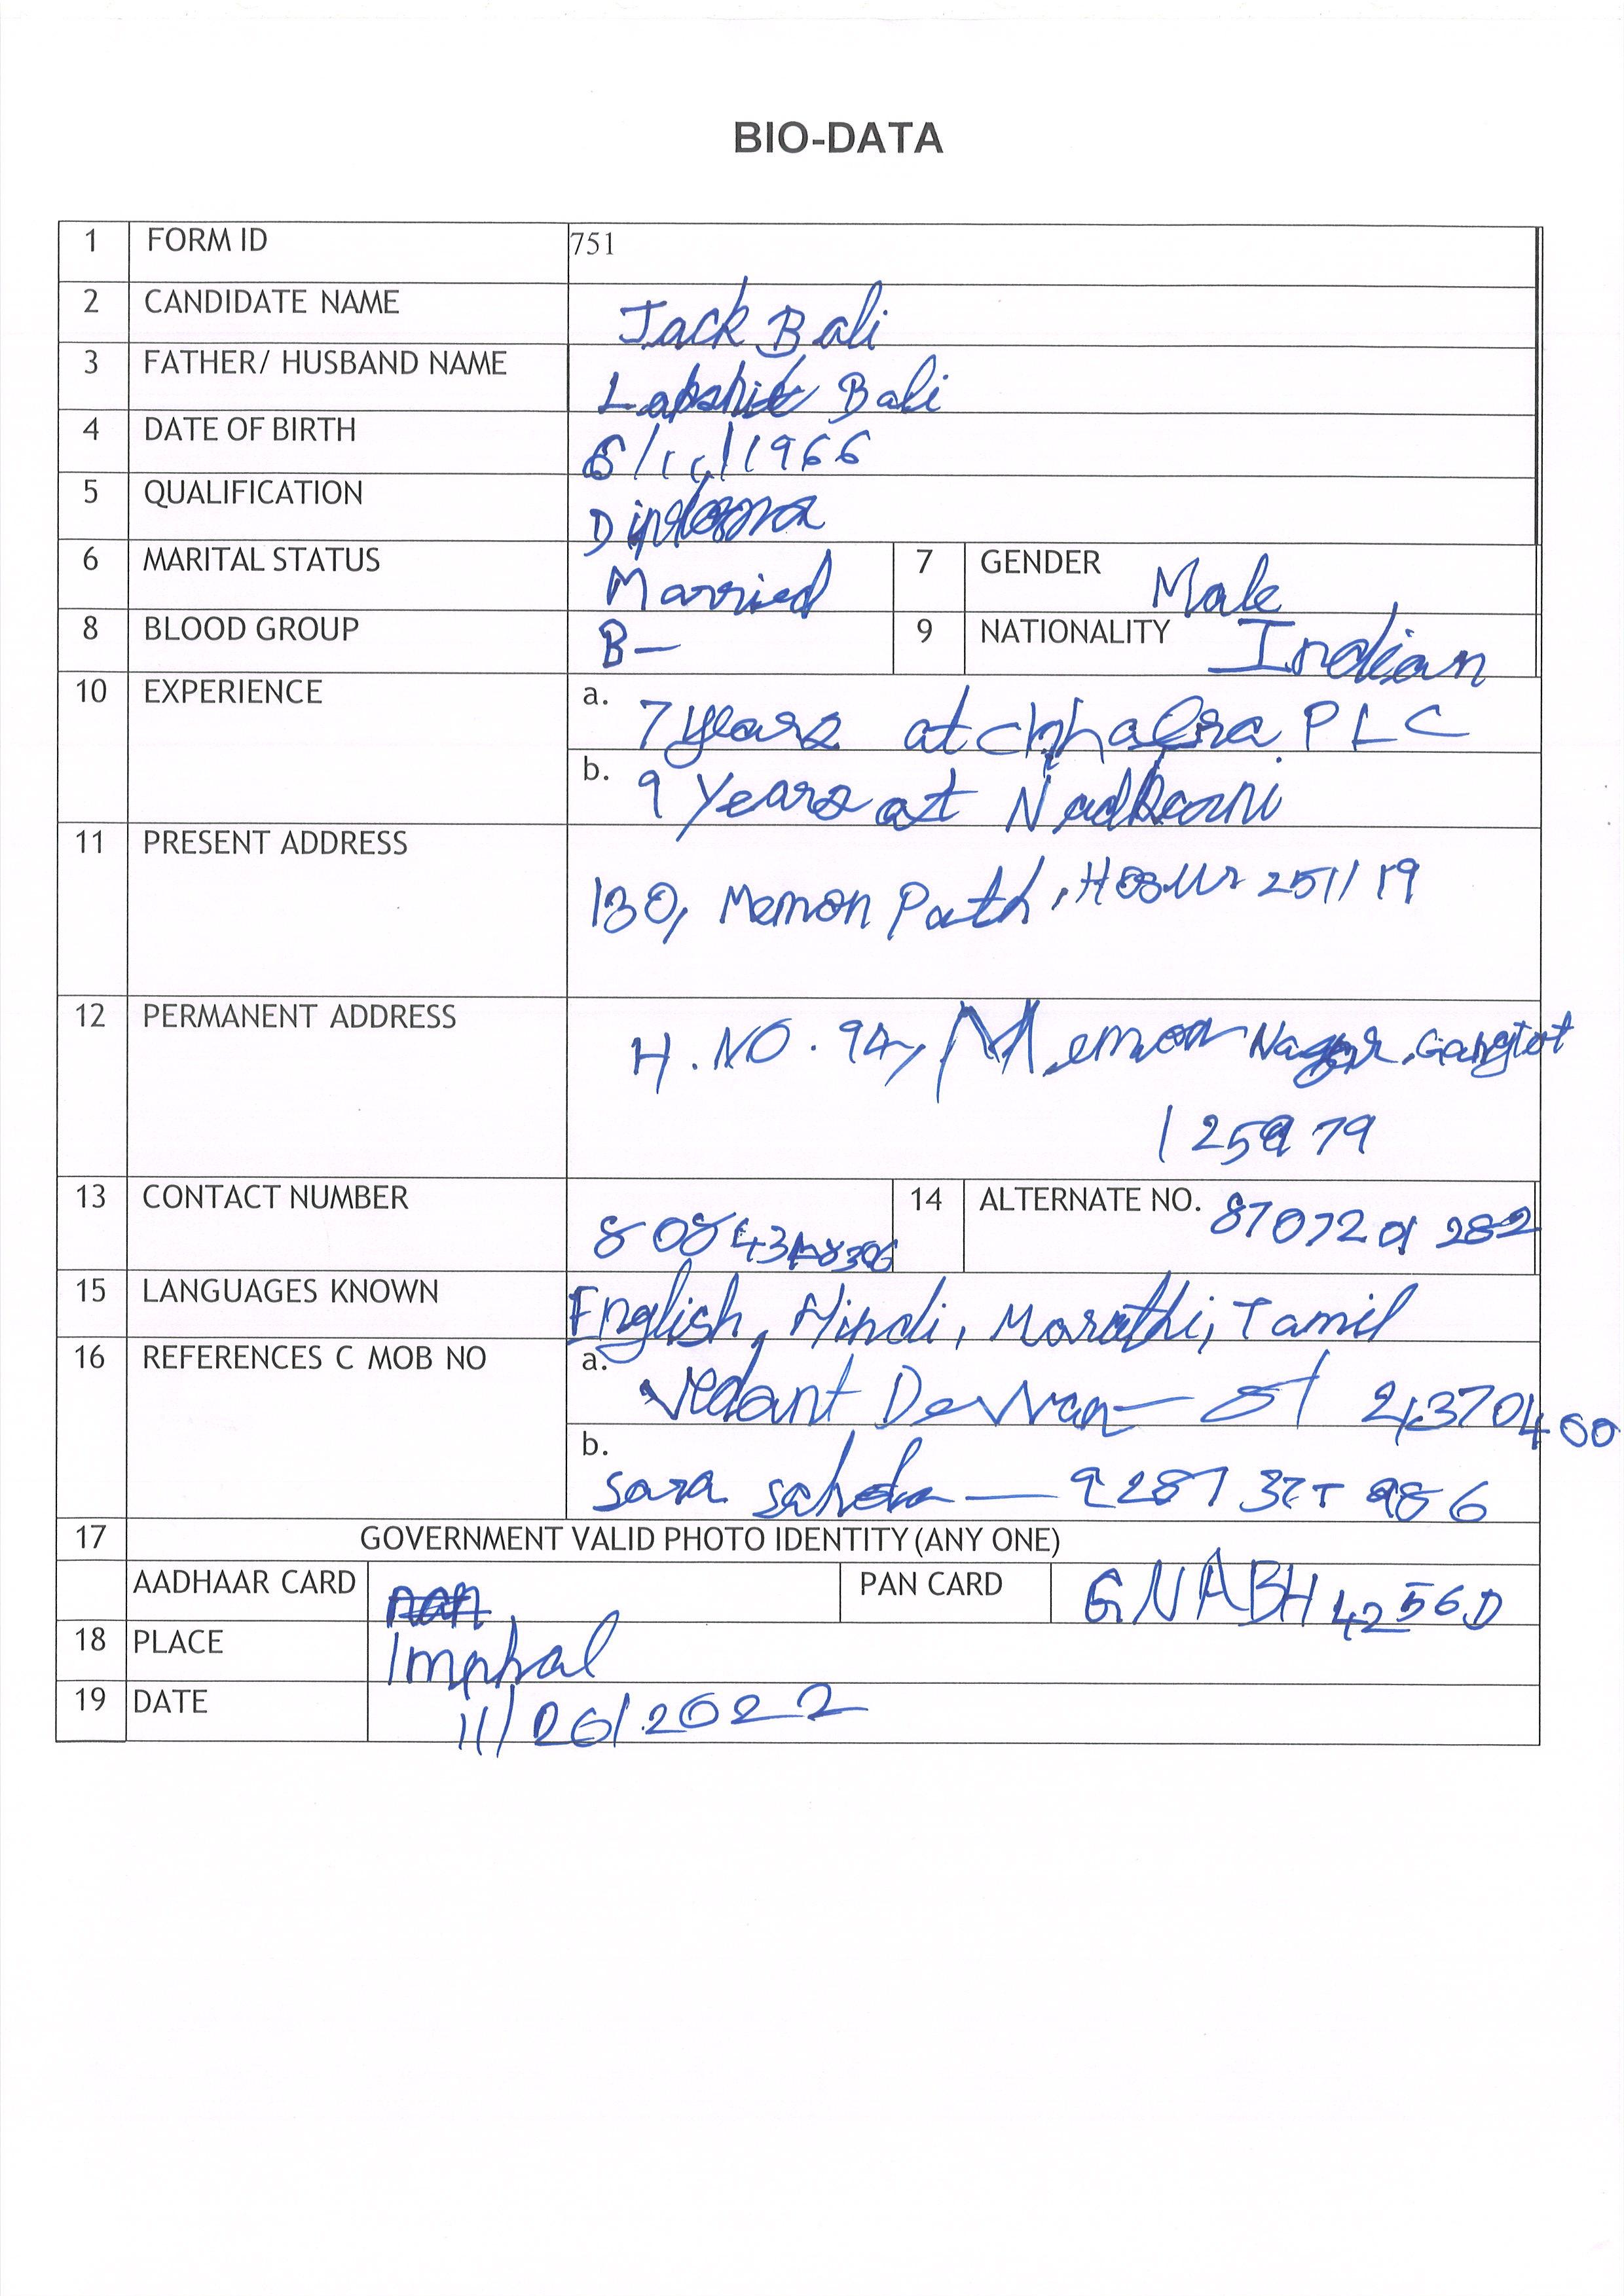 BIO-DATA
1 FORM ID 751
2 CANDIDATE NAME Jack Bali
3 FATHER/ HUSBAND NAME Bali
4 DATE OF BIRTH /1966
5 QUALIFICATION Diploma
6 MARITAL STATUS Married 7 GENDER Male
8 BLOOD GROUP B- 9 NATIONALITY Indian
10 EXPERIENCE a. 7 years at Chhabra PLC
b. 9 years at Nadkarni
11 PRESENT ADDRESS 130, Memon Path, Hosur 251119
12 PERMANENT ADDRESS H.NO. 94, Memon Nagar, Gangtok
125979
13 CONTACT NUMBER 14 ALTERNATE NO. 8707201282
15 LANGUAGES KNOWN English, Hindi, Marathi, Tamil
16 REFERENCES C MOB NO a. Vedant Dewan -
b. Sara -
17 GOVERNMENT VALID PHOTO IDENTITY (ANY ONE)
AADHAAR CARD PAN CARD GNABH4256D
18 PLACE Imphal
19 DATE 11/06/2022